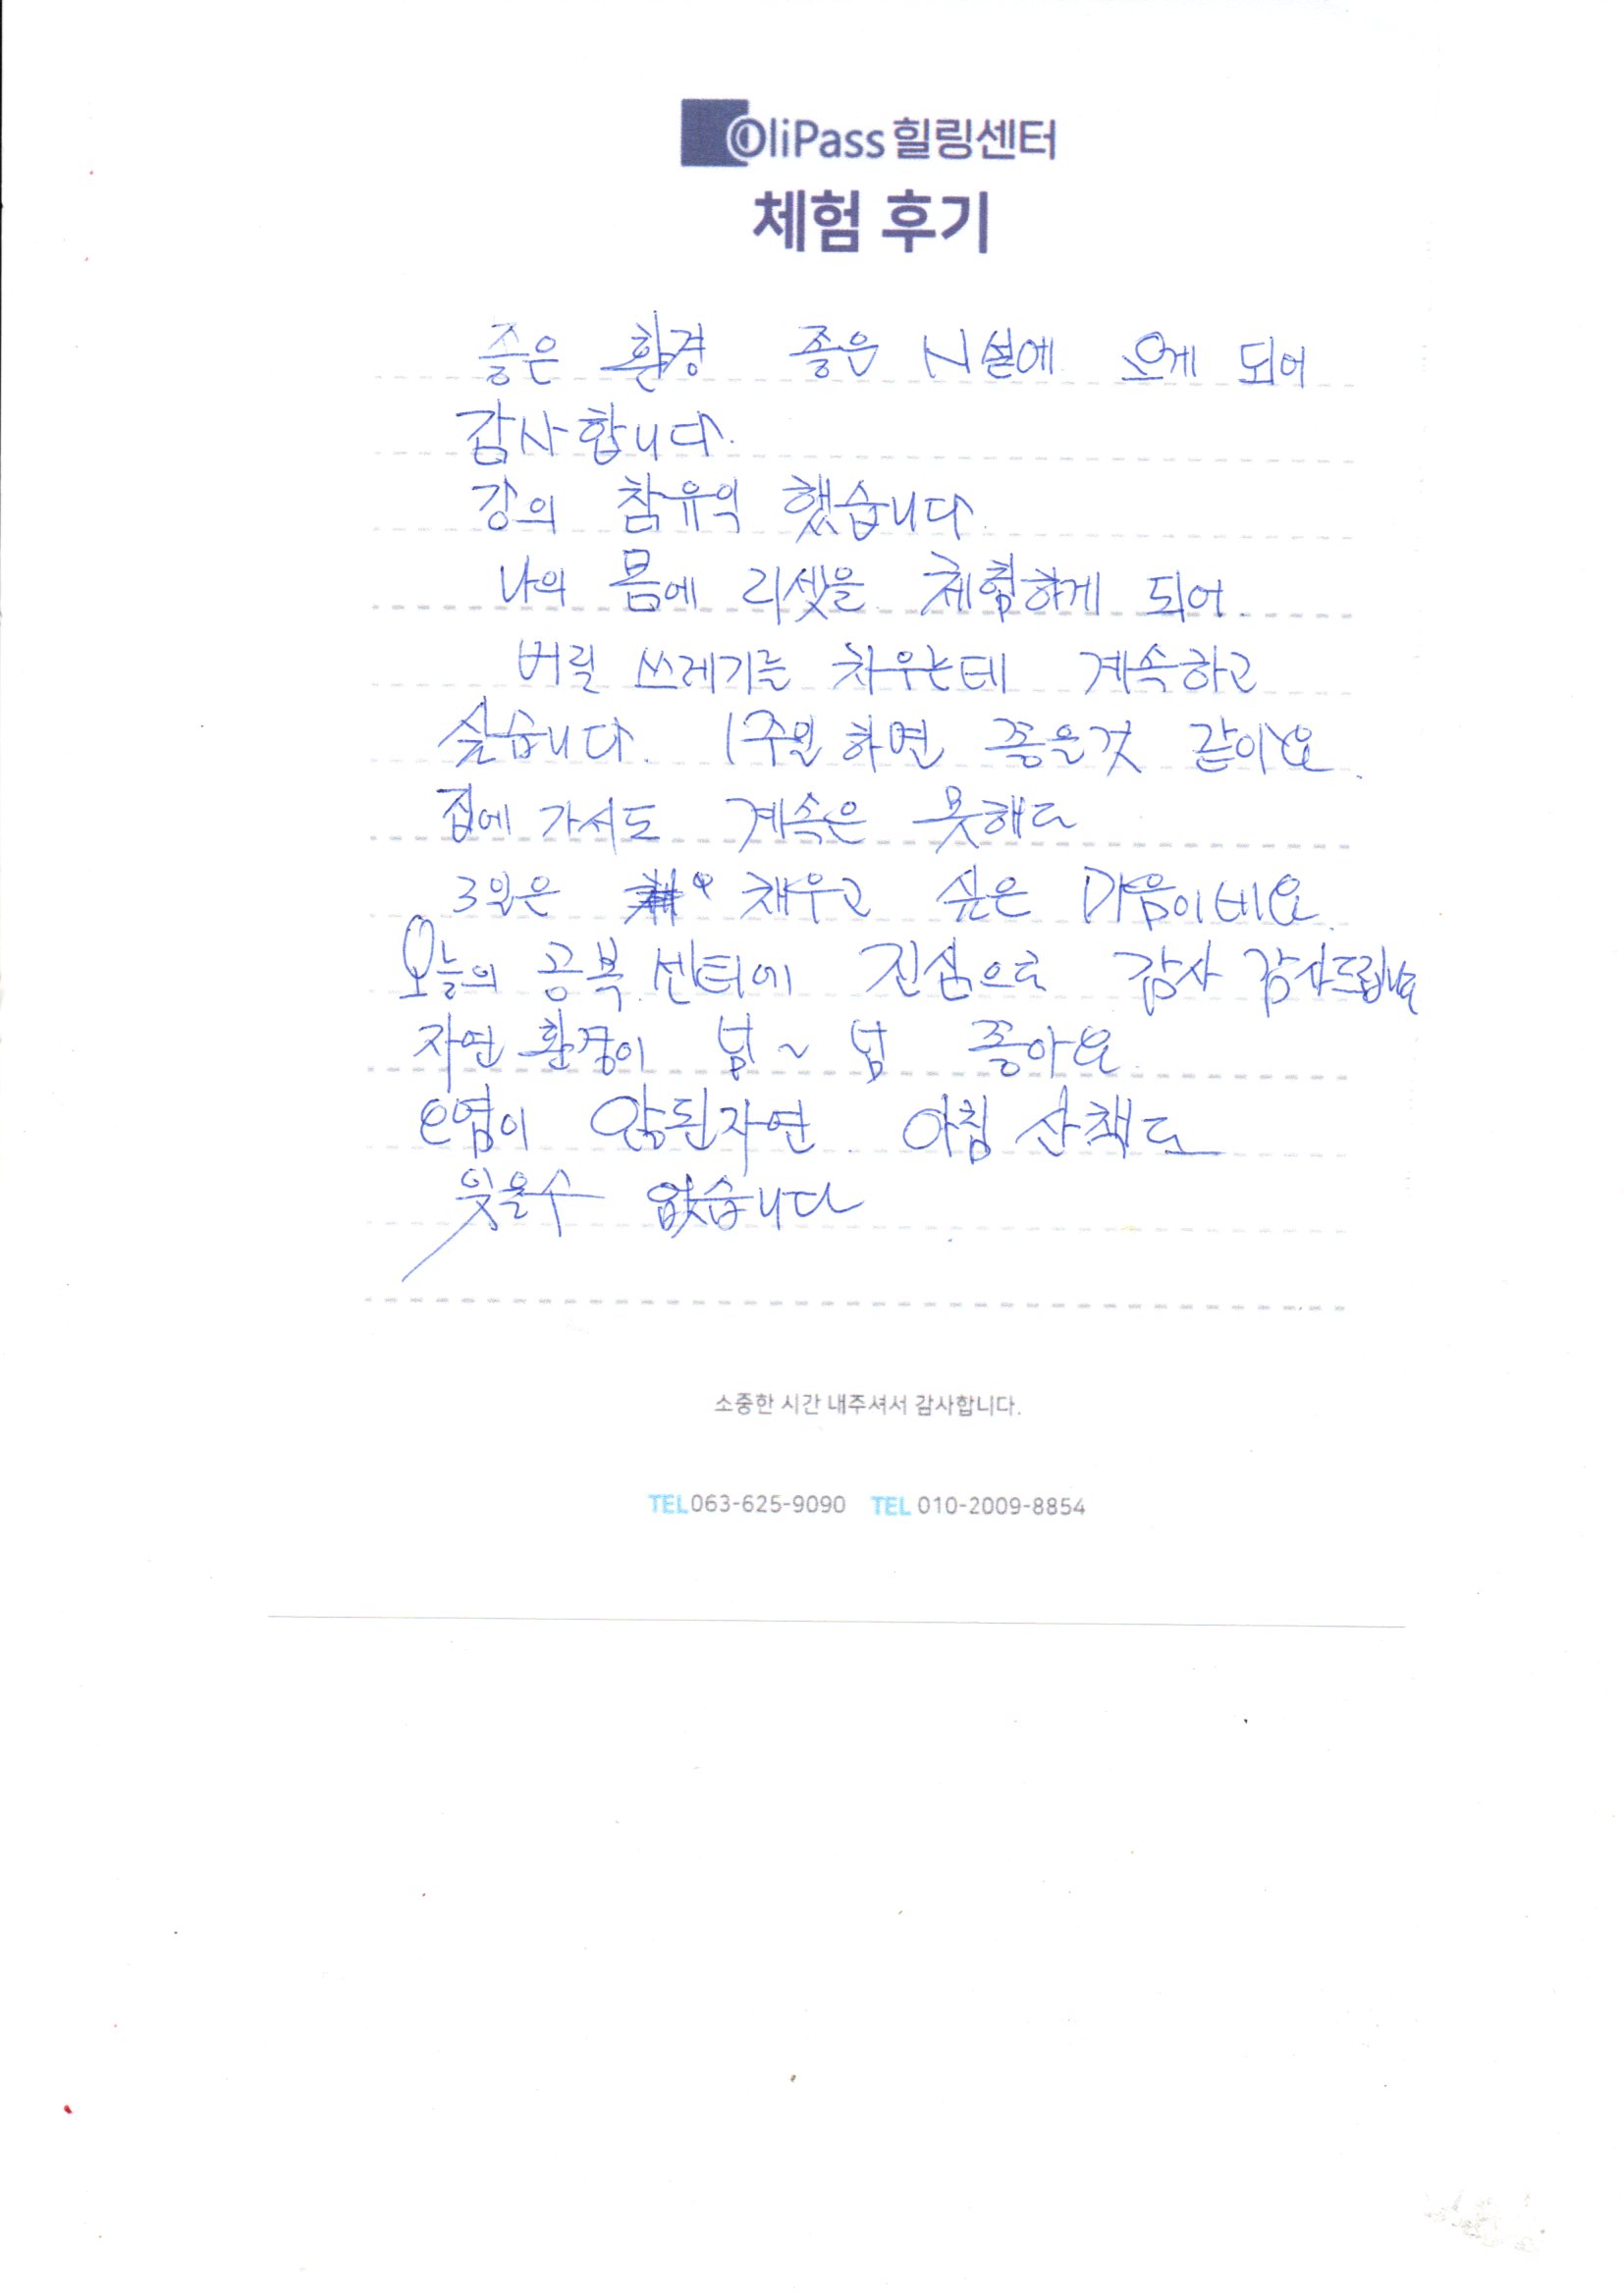 OliPass 힐링센터
체험 후기
좋은 환경 좋은 시설에 오게 되어
감사합니다.
강의 참유익 했습니다.
나의 몸에 리셋을 체험하게 되어.
버릴 쓰레기를 치우는테 계속하고
싶습니다. 1주일 하면 좋을것 같이요.
집에 가서도 계속은 못해도
3일은 채우고 싶은 마음이네요.
오늘의 공복 센터에 진심으로 감사 감사드립니다
자연 환경이 넘~ 넘 좋아요.
오염이 않된자연. 아침 산책도
잊을수 없습니다
소중한 시간 내주셔서 감사합니다.
TEL 063-625-9090 TEL 010-2009-8854